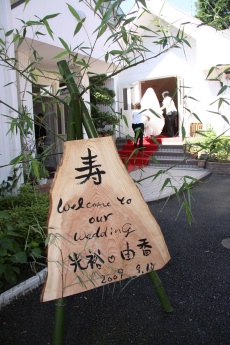 寿
Welcome to
our
wedding
光裕♡由香
2009 9.13